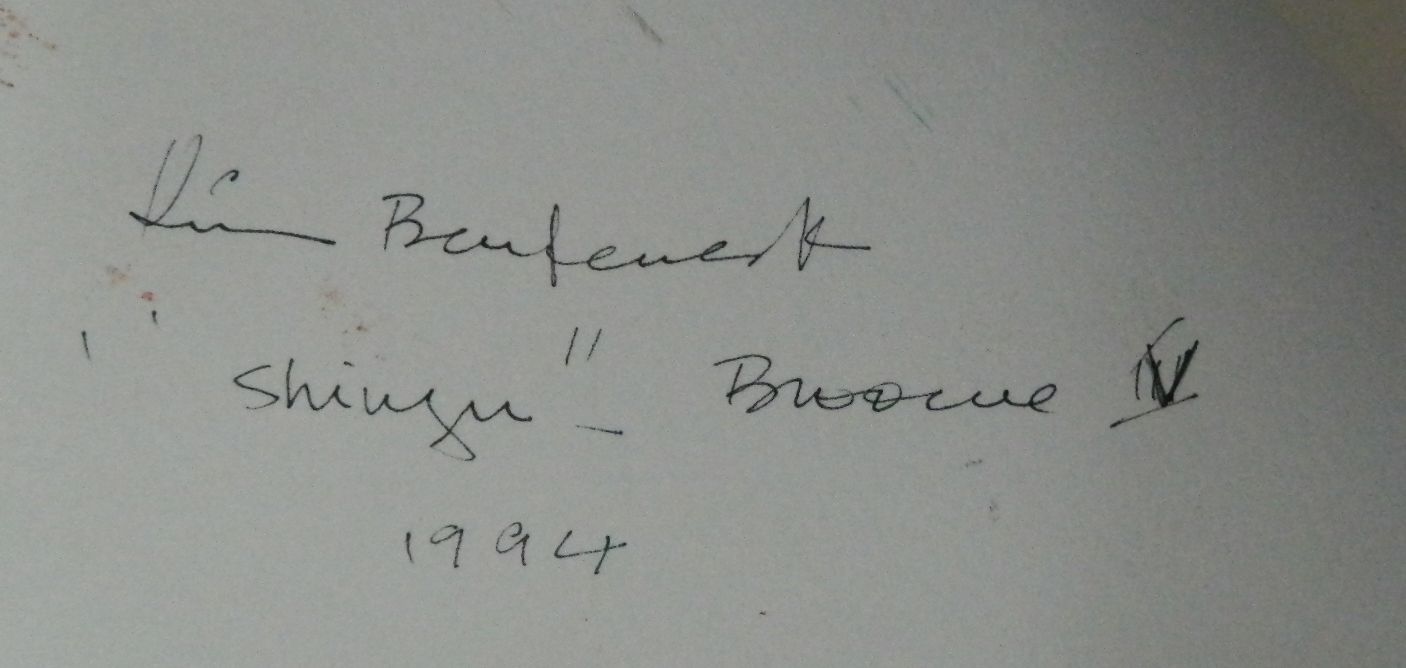 Kim
"Shinju" - Broome IV
1994